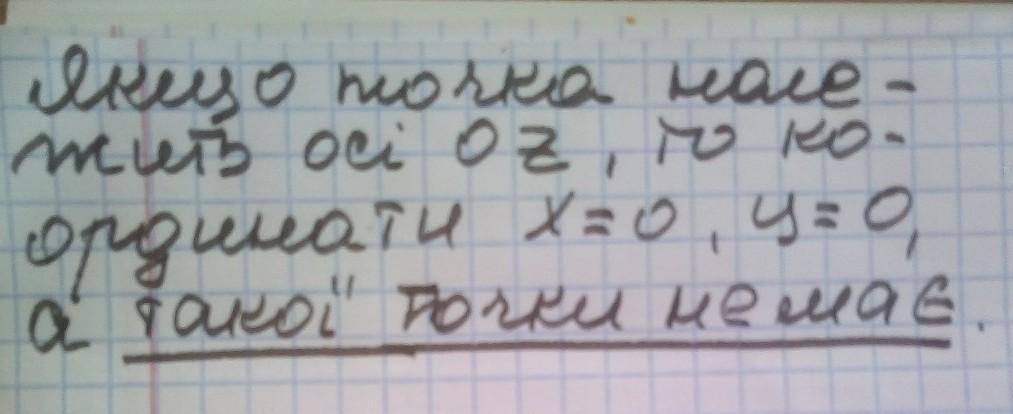 Якщо точка нале-
жить осі OZ, то ко-
ординати x=0, y=0,
а такої точки немає.